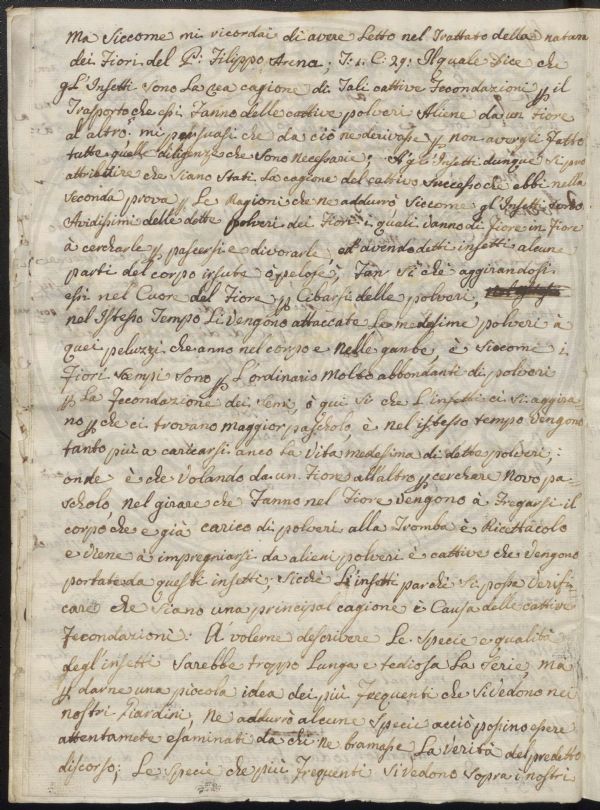 Ma Siccome mi ricordai di avere Letto nel Trattato della natura
dei Fiori del P: Filippo Arena; T: 1: C: 29: Il quale Dice che
gl'Insetti sono La rea cagione di Tali cattive Fecondazioni p il
Trasporto che essi Fanno delle cattive polveri Aliene da un Fiore
al altro; mi persuasi che da ciò ne derivasse p non avergli Fatto
tutte quelle diligenze che sono necessarie; A gl'Insetti dunque si può
attribuire che siano stati La cagione del cattivo Successo che ebbi nella
Seconda prova p Le Ragioni che ne addurrò Siccome gl'Insetti sono
Avidissimi delle dette polveri dei Fiori i quali vanno di Fiore in Fiore
à cercharle p pascersi e divorarle, ed avendo detti insetti alcune
parti del corpo irsute o pelose, Fan Si che aggirandosi
essi nel Cuore del Fiore p Cibarsi delle polveri,
nel Istesso Tempo Li vengono attaccate Le medesime polveri a
quei peluzzi che anno nel corpo e nelle gambe, è Siccome i
Fiori Sempi sono p L'ordinario Molto abbondanti di polveri
p La Fecondazione dei Semi, ò qui si che L'insetti ci si aggira-
no p che ci trovano maggior pascholo, è nel istesso tempo vengono
tanto più a caricarsi anco La vita medesima di dette polveri;
onde è che volando da un Fiore all'altro p cerchare Novo pa-
scholo, nel girare che Fanno nel Fiore vengono à Fregarsi il
corpo che e già carico di polveri alla Tromba è Ricettacolo
e viene à impregniarsi da alieni polveri è cattive che vengono
portate da questi insetti; Sicchè L'insetti parche si possa verifi-
care che siano una principal cagione è Causa delle cattive
Fecondazioni: A volerne descrivere Le Specie e qualità
degl'insetti Sarebbe troppo Lunga e tediosa La Serie, ma
p darne una piccola idea dei più Frequenti che Si vedono nei
nostri Giardini, Ne addurrò alcune Specie acciò possino essere
attentamete esaminati da chi ne bramasse La verità del predetto
discorso; Le Specie che più Frequenti Si vedono sopra i nostri